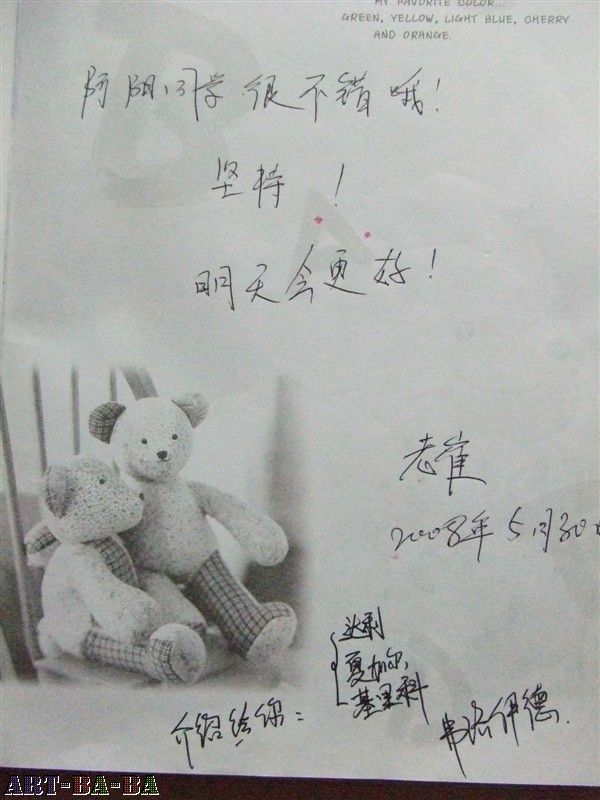 MY FAVORITE COLOR...
GREEN, YELLOW, LIGHT BLUE, CHERRY
AND ORANGE.
阿阳同学很不错哦!
坚持!
明天会更好!
老崔
2008年5月30
介绍给你:
达利
夏加尔,
基里科
弗洛伊德.
ART-BA-BA